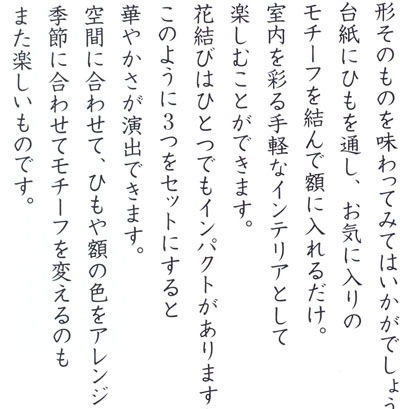 形そのものを味わってみてはいかがでしょう
台紙にひもを通し、お気に入りの
モチーフを結んで額に入れるだけ。
室内を彩る手軽なインテリアとして
楽しむことができます。
花結びはひとつでもインパクトがあります
このように3つをセットにすると
華やかさが演出できます。
空間に合わせて、ひもや額の色をアレンジ
季節に合わせてモチーフを変えるのも
また楽しいものです。